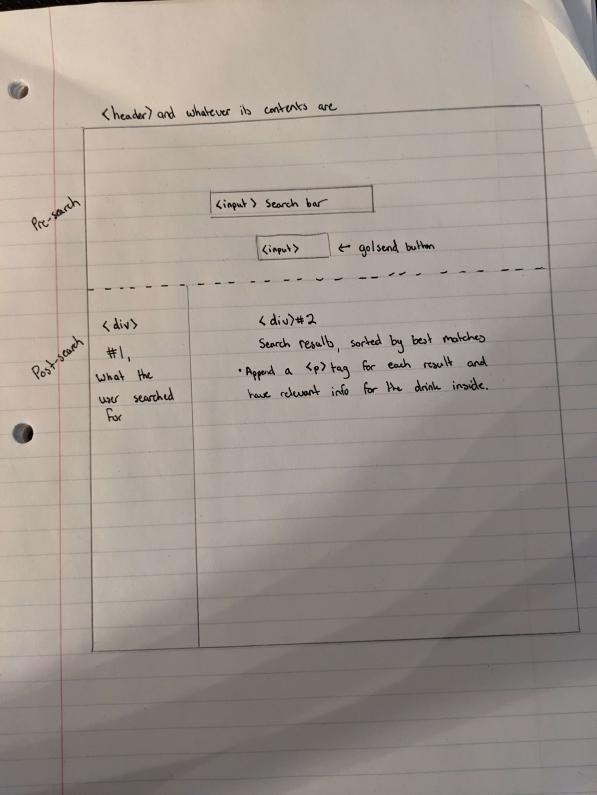 <header> and whatever its contents are
Pre-search
<input> Search bar
<input> ← go/send button
Post-search
<div>
#1,
what the
user searched
for
<div>#2
Search results, sorted by best matches
• Append a <p> tag for each result and
have relevant info for the drink inside.